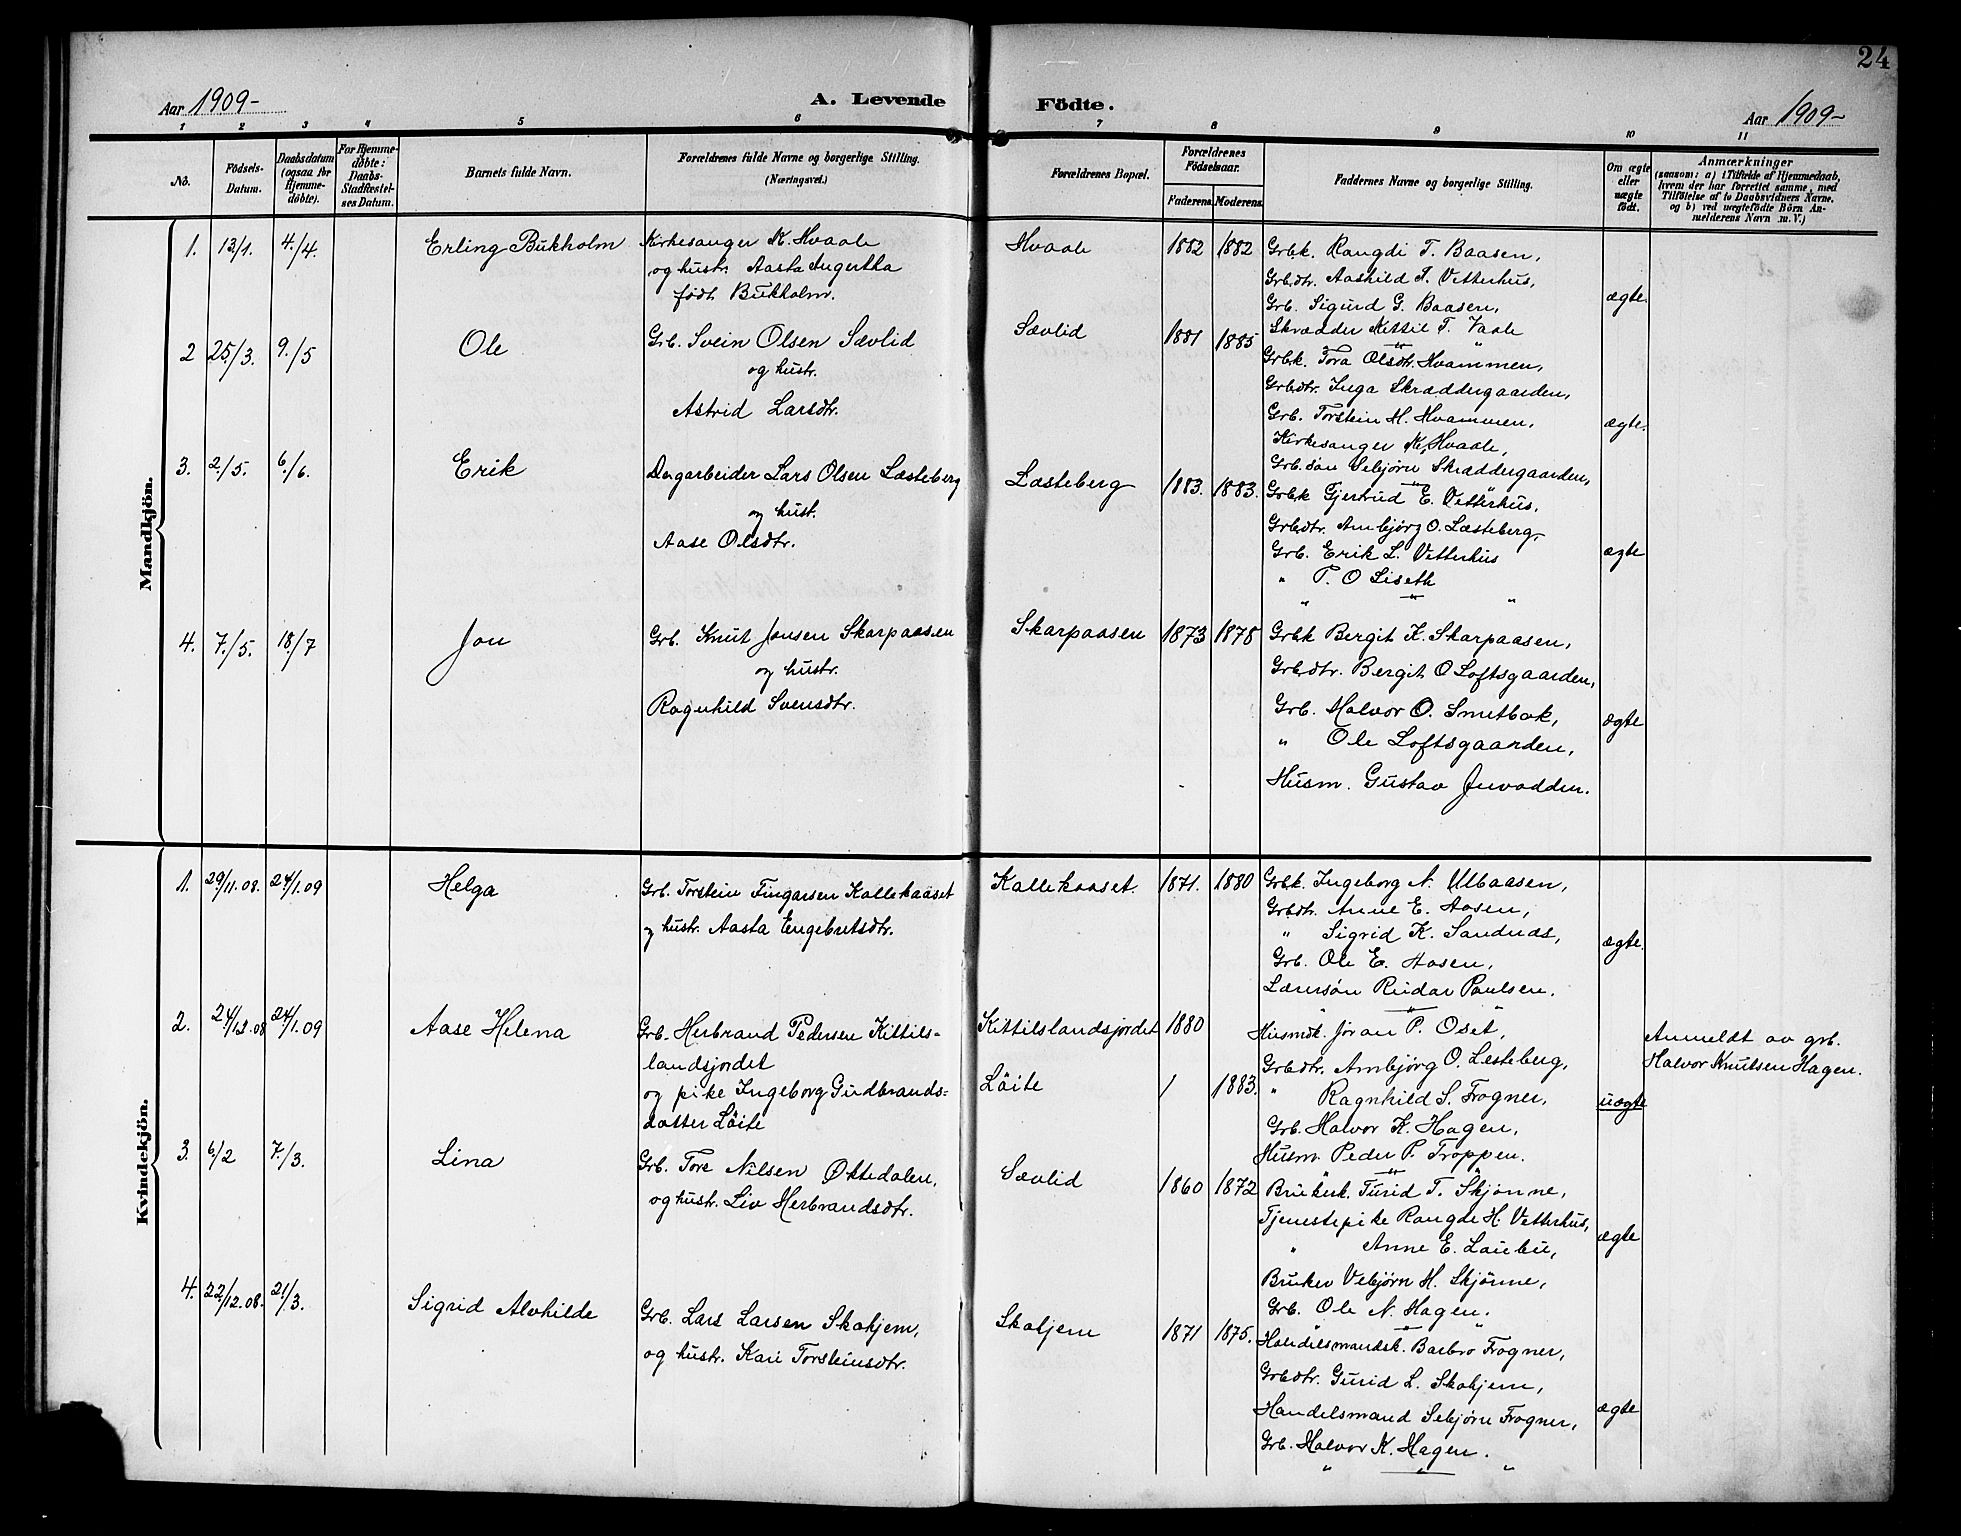 24
Aar 1909-
A. Levende Födte.
Aar 1909-
1 2 3 4 5 6 7 8 9 10 11
No.
Födsels-Datum.
Daabsdatum (ogsaa for Hjemme-döbte).
For Hjemme-döbte: Daabs-Stadfæstel-ses Datum.
Barnets fulde Navn.
Forældrenes fulde Navne og borgerlige Stilling.
(Næringsvei.)
Forældrenes Bopæl.
Forældrenes Födselsaar.
Faderens. Moderens.
Faddernes Navne og borgerlige Stilling.
Om ægte eller uægte födt.
Anmærkninger
(saasom: a) i Tilfælde af Hjemmedaab,
hvem der har forrettet samme, med
Tilföielse af to Daabsvidners Navne,
og b) ved uægtefödte Börn An-
melderens Navn m. V.)
Mandkjön.
1. 13/1. 4./4. Erling Bükholm
Kirkesanger K. Hvaale
og hustr. Aasta Ingertha
født Bükholm.
Hvaale 1882 1882
Grbk. Rangdi T. Baasen,
Grbdtr. Aashild T. Vetterhus,
Grb. Sigurd G. Baasen,
Skrædder Kittil T. Vaale
ægte.
2 25/3. 9./5 Ole
Grb. Svein Olsen Sævlid
og hustr.
Astrid Larsdtr.
Sævlid 1881 1885
Grbk. Tora Olsdtr. Hvammen,
Grbdtr. Inga Skræddergaarden,
Grb. Torstein H. Hvammen,
Kirkesanger K. Hvaale,
Grb.søn Sebjørn Skræddergaarden,
ægte.
3. 2./5. 6./6. Erik
Dagarbeider Lars Olsen Læsteberg
og hust.
Aase Olsdtr.
Læsteberg 1883. 1883.
Grbk Gjertrud E. Vetterhus,
Grbdtr. Ambjørg O. Læsteberg,
Grb. Erik L. Vetterhus
" T. O Liseth
" "
ægte
4. 7./5. 18./7 Jon
Grb. Knut Jonsen Skarpaasen
og hustr.
Ragnhild Svensdtr.
Skarpaasen 1873 1878
Grbk Bergit K. Skarpaasen,
Grbdtr. Bergit O Loftsgaarden,
Grb. Halvor O. Smetbak,
" Ole Loftsgaarden,
Husm. Gustav Juvodden.
ægte
Kvindekjön.
1. 29/11.08. 24/1.09 Helga
Grb. Torstein Fingarsen Kallekaaset
og hustr. Aasta Engebretsdtr.
Kallekaaset. 1871. 1880
Grbk. Ingeborg N. Ulbaasen,
Grbdtr. Anne E. Aasen,
" Sigrid K. Sandnes,
Grb. Ole E. Aasen,
Lærersøn Reidar Paulsen.
ægte.
2. 24/12.08 24/1.09 Aase Helena
Grb. Herbrand Pedersen Kittils=
landsjordet
og pike Ingeborg Gudbrands=
datter Löite
Kittilslandsjordet 1880
Löite / 1883.
Husmdk. Jöran P. Oset,
Grbdtr. Ambjörg O. Lesteberg,
" Ragnhild S. Frogner,
Grb. Halvor K. Hagen,
Husm. Peder P. Troppen.
uægte
Anmeldt av grb.
Halvor Knutsen Hagen.
3. 6/2 7./3. Lina
Grb. Tore Nilsen Øktedalen,
og hustr. Liv Herbrandsdtr.
Sævlid 1860 1872
Brukerk. Turid T. Skjönne,
Tjenestepike Rangdi H. Vetterhus,
" Anne E. Laubu,
Bruker Vebjörn H. Skjönne,
Grb. Ole N. Hagen.
ægte
4. 22/12.08. 21./3. Sigrid Alvhilde
Grb. Lars Larsen Skahjem,
og hustr. Kari Torsteinsdtr.
Skaljem 1871 1875.
Handelsmandsk. Barbro Frogner,
Grbdtr. Gurid L. Skahjem,
Handelsmand Sebjörn Frogner,
Grb. Halvor K. Hagen.
" "
ægte